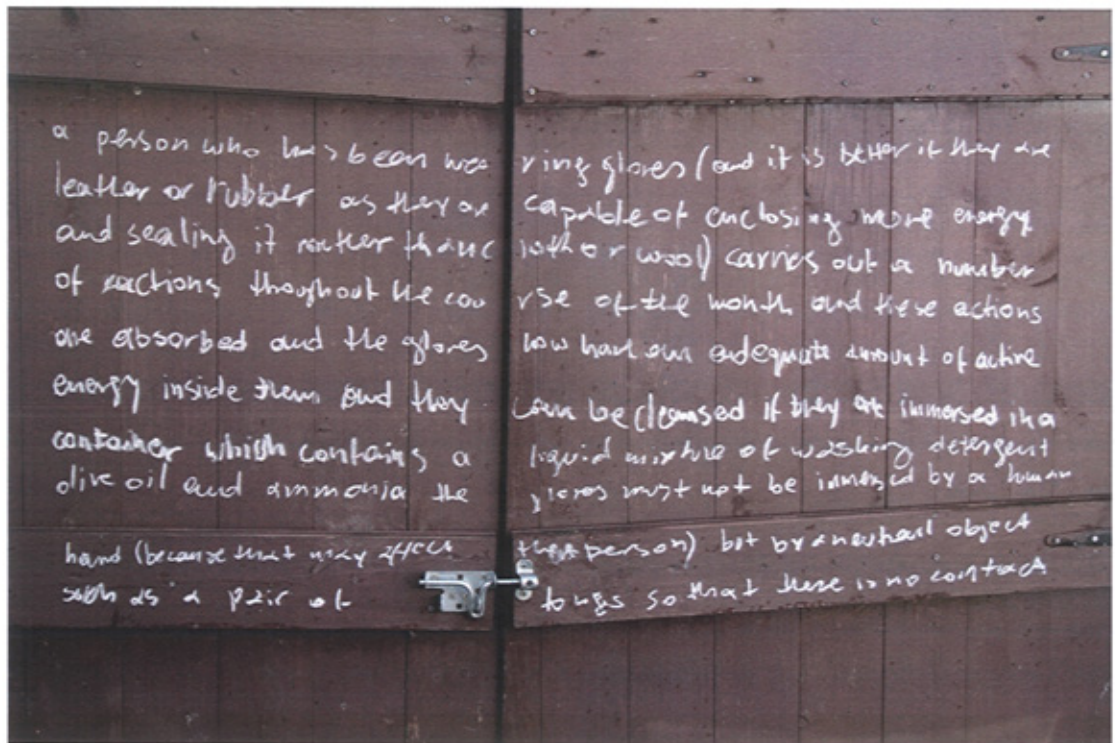 a person who has been wea ring gloves (and it is better if they are
leather or rubber as they are capable of enclosing more energy
and sealing it rather than c loth or wool) carries out a number
of actions throughout the cou rse of the month and these actions
are absorbed and the gloves now have an adequate amount of active
energy inside them and they can be cleansed if they are immersed in a
container which contains a liquid mixture of washing detergent
olive oil and ammonia the gloves must not be immersed by a human
hand (because that may affect that person) but by a neutral object
such as a pair of tongs so that there is no contact